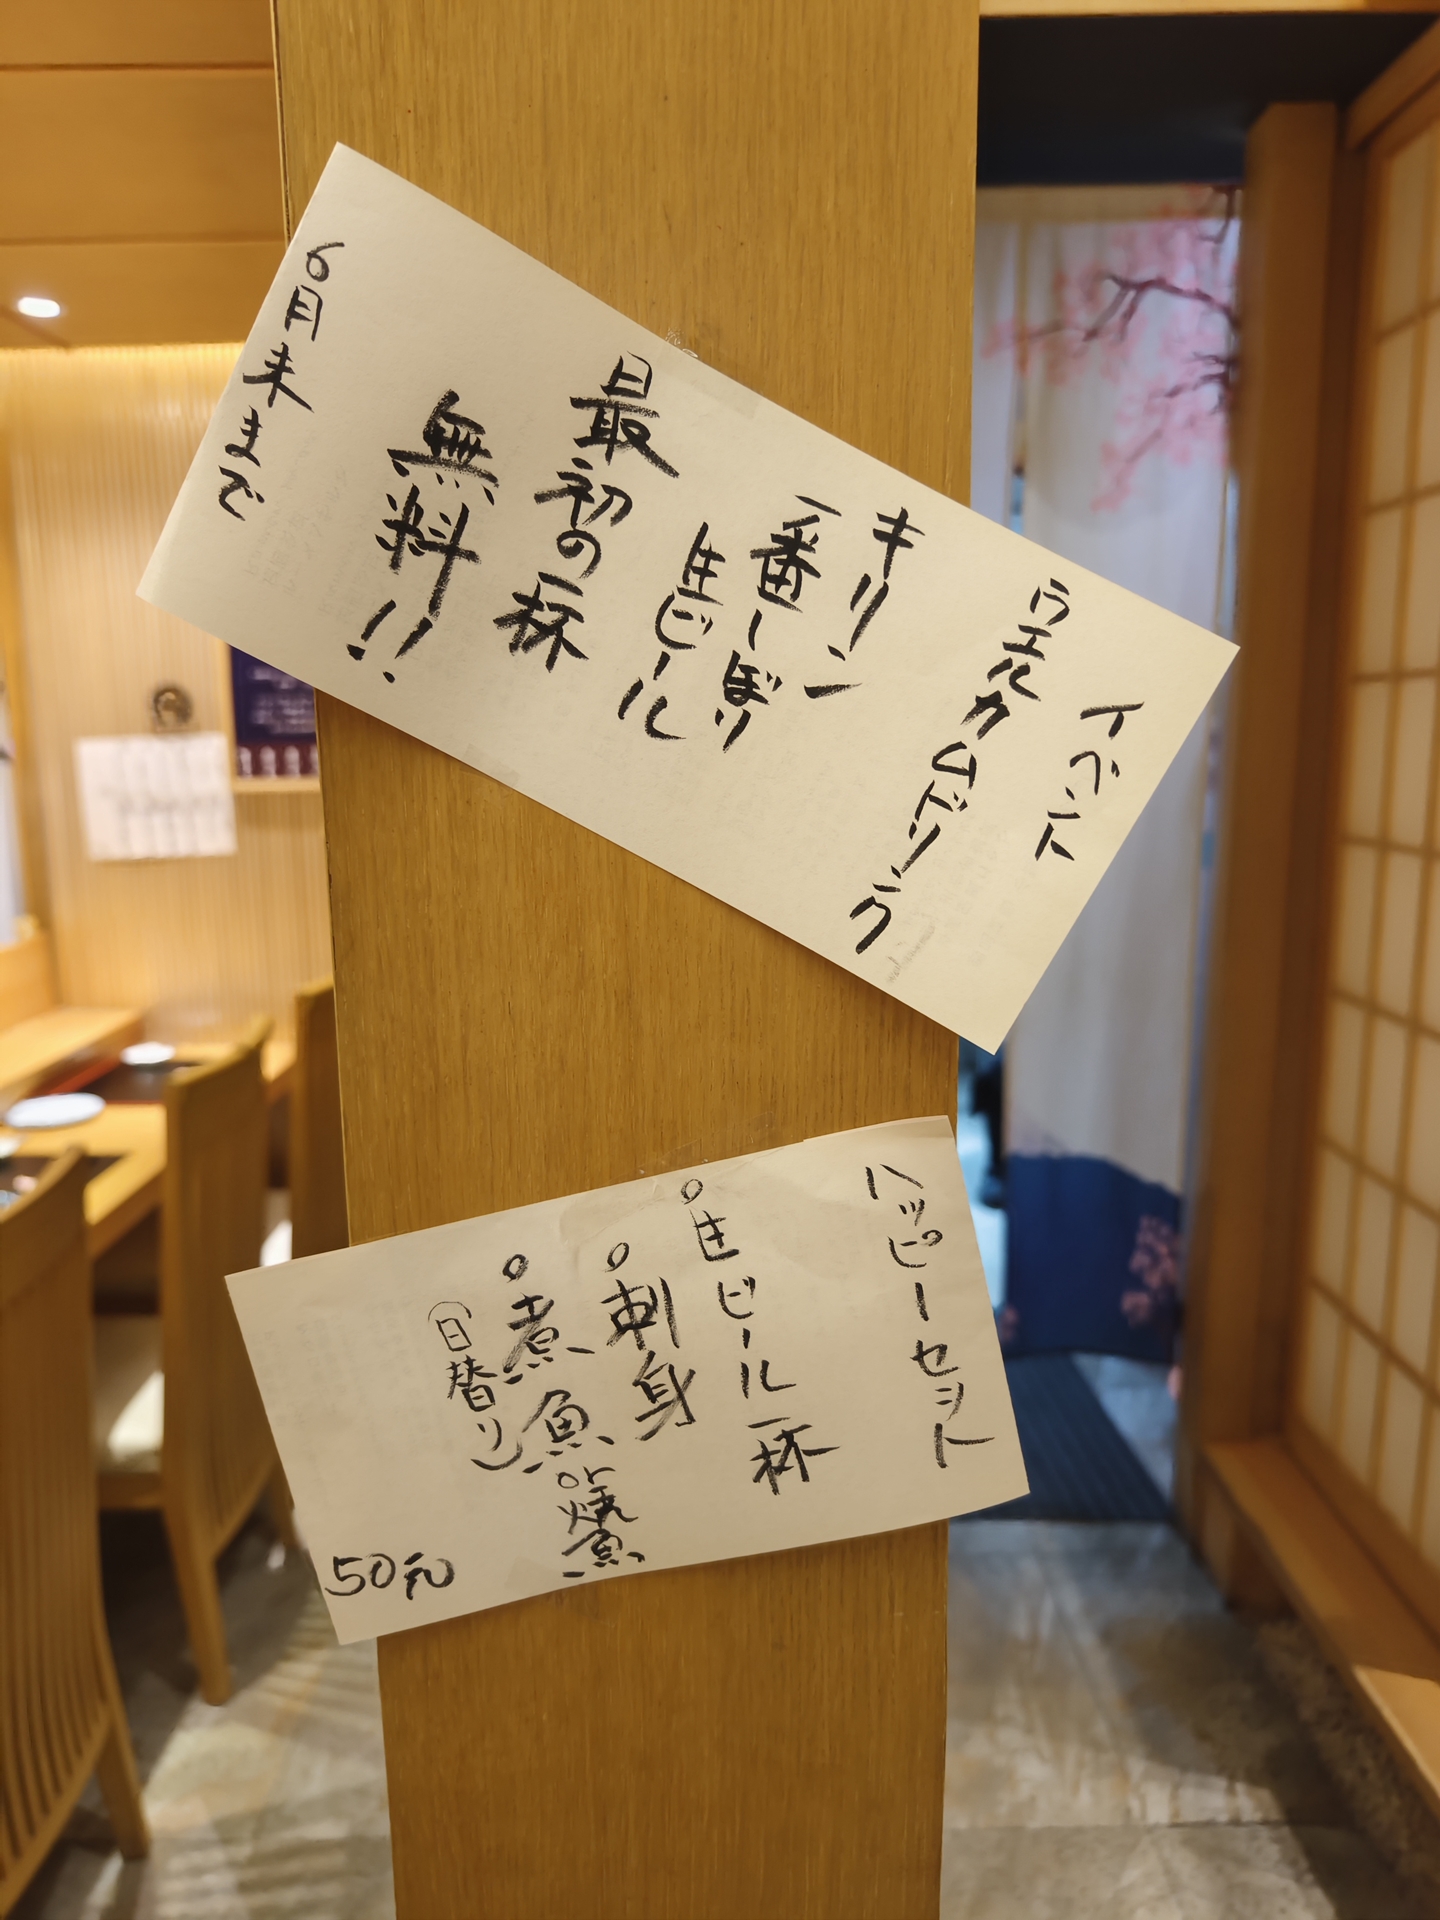 イベント
ウエルカムドリンク
キリン
一番しぼり
生ビール
最初の一杯
無料!!
6月末まで
ハッピーセット
○生ビール一杯
○刺身
○煮魚or焼魚
(日替り)
50元